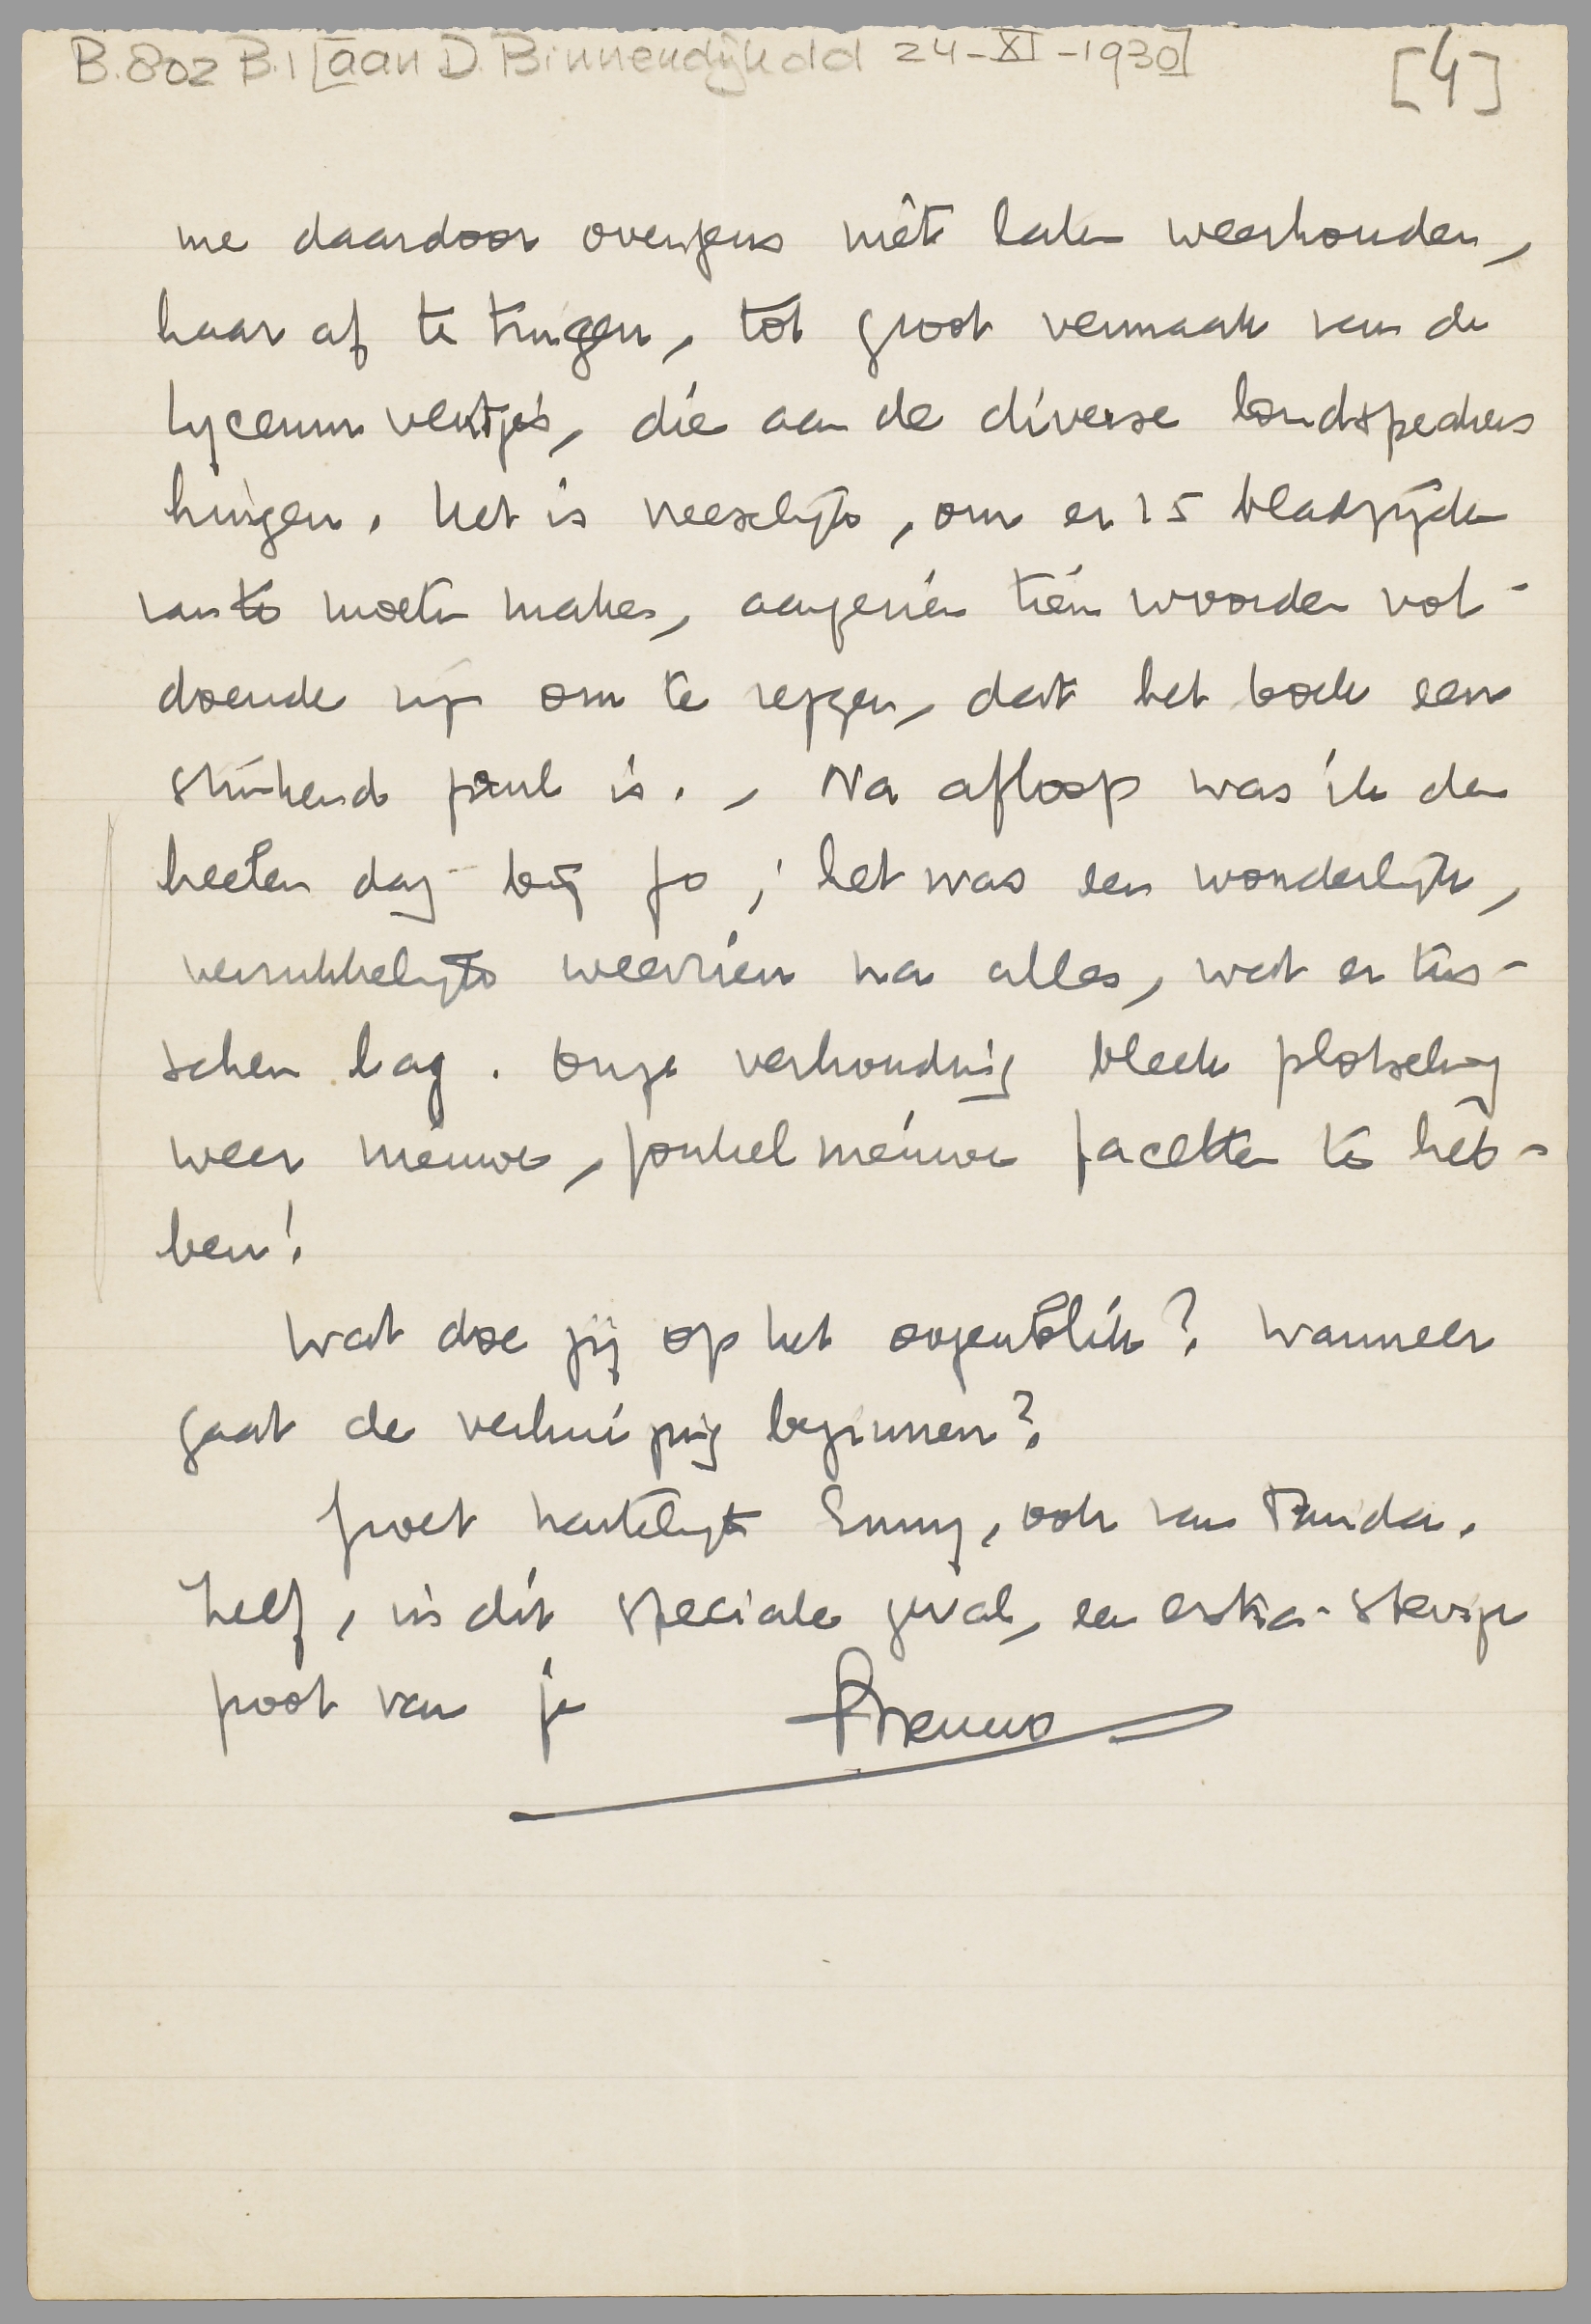 B.802 B.1 [aan D. Binnendijk dd 24-XI-1930]
[4]
me daardoor overigens niet laten weerhouden,
haar af te tuigen, tot groot vermaak van de
lyceumventjes, die aan de diverse loudspeakers
hingen. Het is vreeselijk, om er 15 bladzijden
van te moeten maken, aangezien tien woorden vol-
doende zijn om te zeggen, dat het boek een
stinkend prul is. - Na afloop was ik den
heelen dag bij Jo; het was een wonderlijk,
verrukkelijk weerzien na alles, wat er tus-
schen lag. Onze verhouding bleek plotseling
weer nieuwe, fonkelnieuwe facetten te heb-
ben!
Wat doe jij op het oogenblik? Wanneer
gaat de verhuizing beginnen?
Groet hartelijk Enny, ook van Truida.
Zelf, in dit speciale geval, een extra-stevige
poot van je
Menno